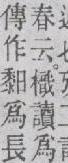 春云。樴讀爲
傳作䵑爲長